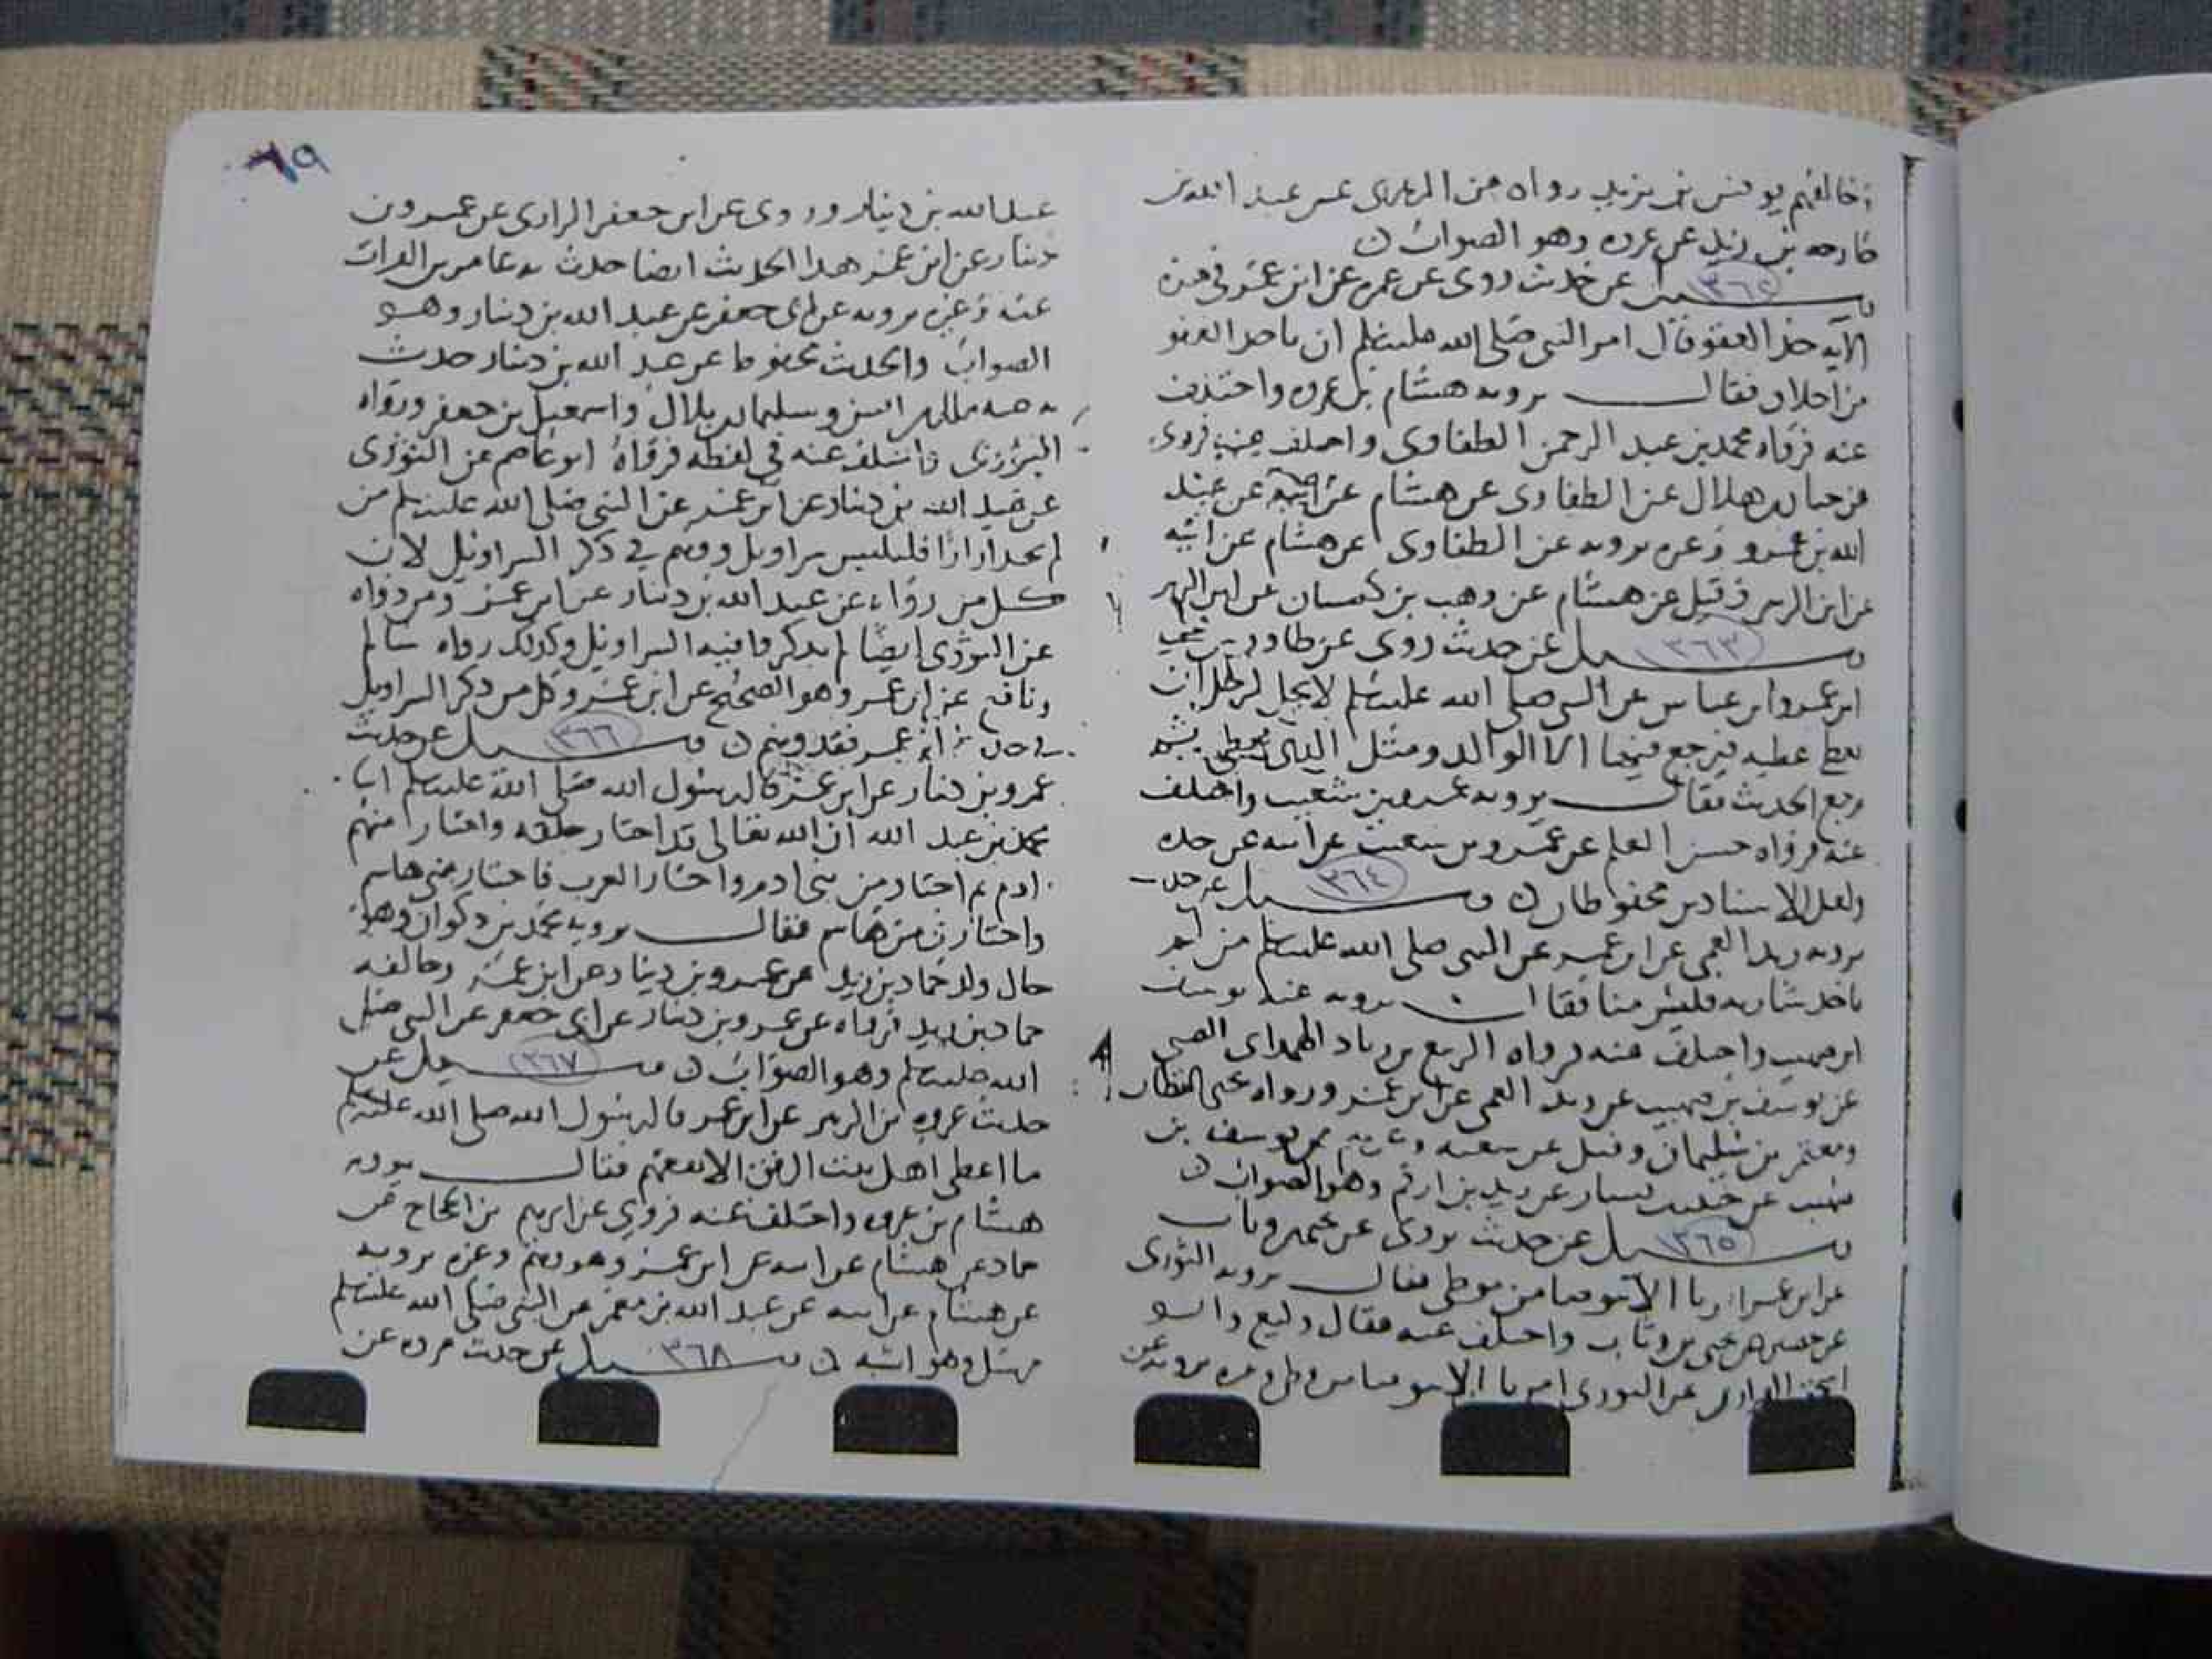 فخالفهم يونس بن يزيد رواه عن الزهري عن عبد الملك
خارجه بن زيد عن عروه وهو الصواب ن
وسيل ٣٦٢ عن حديث روى عن عروه عن ابن عمر في هذه
الآيه خذ العفو قال امر النبي صلى الله عليه وسلم ان ياخذ العفو
من اخلاق فقال يرويه هشام بن عروه واختلف
عنه فرواه محمد بن عبد الرحمن الطفاوى واختلف عنه فروى
عن حبان بن هلال عن الطفاوى عن هشام عن ابيه عن عبد
الله بن عمرو وغيره يرويه عن الطفاوى عن هشام عن ابيه
عن ابن الزبير وقيل عن هشام عن وهب بن كيسان عن ابن الزبير
وسيل ٣٦٣ عن حديث روى عن طاوس عن
ابن عمر وابن عباس عن النبي صلى الله عليه وسلم لا يحل لرجل ان
يعطى عطيه فيرجع فيها الا الوالد ومثل الذى يعطى ثم
يرجع الحديث فقال يرويه عمرو بن شعيب واختلف
عنه فرواه حسين المعلم عن عمرو بن شعيب عن ابيه عن جده
ولعل الاسنادين محفوظان ن وسيل ٣٦٤ عن حديث
يرويه زيد العمى عن ابن عمر عن النبي صلى الله عليه وسلم من لم
ياخذ شاربه فليس منا فقال يرويه عنه يوسف
ابن صهيب واختلف عنه فرواه الربيع بن زياد الهمدانى الضبى
عن يوسف بن صهيب عن زيد العمى عن ابن عمر ورواه يحيى القطان
ومعتمر بن سليمان وقيل عن شعبه وغيرهم عن يوسف بن
صهيب عن حبيب بن يسار عن زيد بن ارقم وهو الصواب ن
وسيل ٣٦٥ عن حديث يروى عن يحيى بن وثاب
عن ابن عمر امرنا الا نتوضا من موطى فقال يرويه الثورى
عن الاعمش عن يحيى بن وثاب واختلف عنه فقال وكيع وابو
اسحق الفزارى عن الثورى امرنا الا نتوضا من موطى وغيره يرويه عن
٦٩
عبد الله بن دينار وروى عن ابى جعفر الرازى عن عمرو بن
دينار عن ابن عمر هذا الحديث ايضا حدث به عامر بن الفرات
عنه وغيره يرويه عن ابى جعفر عن عبد الله بن دينار وهو
الصواب والحديث محفوظ عن عبد الله بن دينار حدث
به عنه مالك بن انس وسليمان بن بلال واسمعيل بن جعفر ورواه
الثورى واختلف عنه فى لفظه فرواه ابو عاصم عن الثورى
عن عبد الله بن دينار عن ابن عمر عن النبي صلى الله عليه وسلم من
لم يجد ازارا فليلبس سراويل ووهم فى ذكر السراويل لان
كل من رواه عن عبد الله بن دينار عن ابن عمر ومن رواه
عن الثورى ايضا لم يذكروا فيه السراويل وكذلك رواه سالم
ونافع عن ابن عمر وهو الصحيح عن ابن عمر وكل من ذكر السراويل
فى حديث ابن عمر فقد وهم ن وسيل ٣٦٦ عن حديث
عمرو بن دينار عن ابن عمر قال رسول الله صلى الله عليه وسلم انا
محمد بن عبد الله ان الله تعالى قد اختار خلقه واختار منهم
ادم ثم اختار من بنى ادم واختار العرب فاختار منى هاشم
واختارنى من هاشم فقال يرويه محمد بن ذكوان وهو
خال ولد حماد بن زيد عن عمرو بن دينار عن ابن عمر وخالفه
حماد بن زيد فرواه عن عمرو بن دينار عن ابى جعفر عن النبي صلى
الله عليه وسلم وهو الصواب ن وسيل ٣٦٧ عن
حديث عروه بن الزبير عن ابن عمر قال رسول الله صلى الله عليه وسلم
ما اعطى اهل بيت الرفق الا نفعهم فقال يرويه
هشام بن عروه واختلف عنه فروى عن ابرهيم بن الحجاج عن
حماد عن هشام عن ابيه عن ابن عمر وهو وهم وغيره يرويه
عن هشام عن ابيه عن عبد الله بن معمر عن النبي صلى الله عليه وسلم
مرسل وهو اشبه ن وسيل ٣٦٨ عن حديث عروه عن